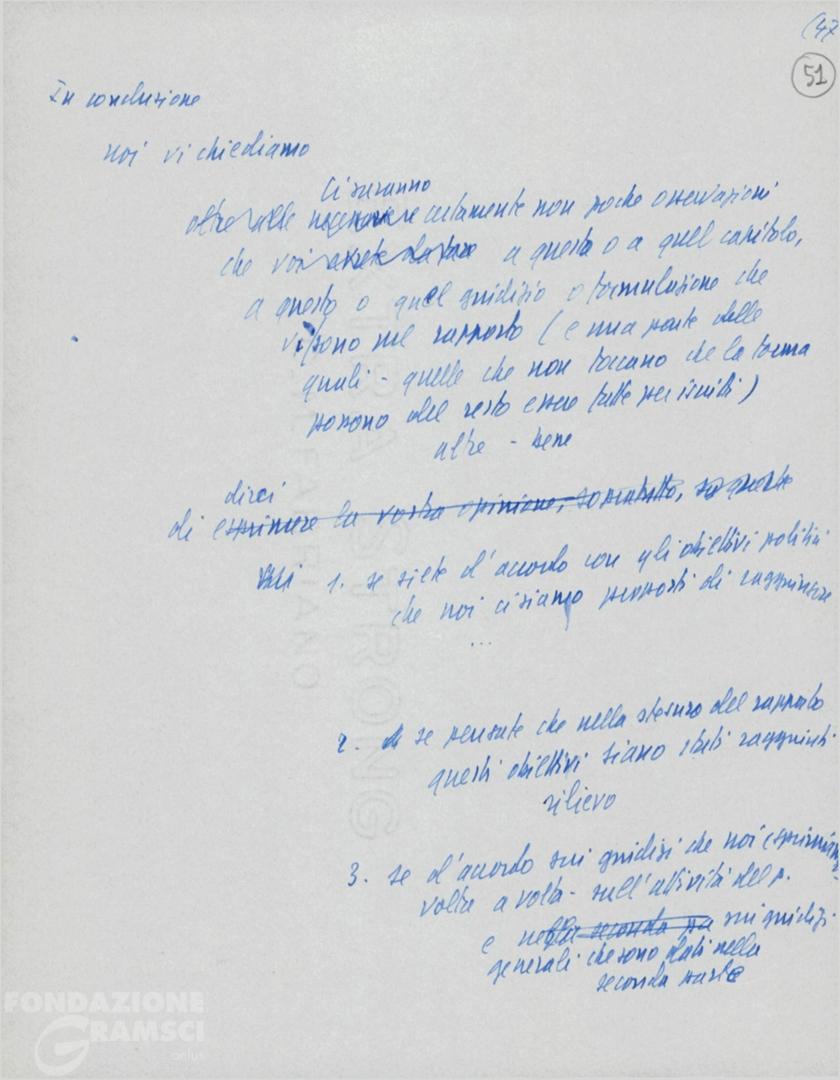 (47
51
In conclusione
noi vi chiediamo
Ci saranno
oltre alle certamente non poche osservazioni
che voi avrete da fare a questo o a quel capitolo,
a questo o quel giudizio o formulazione che
vi sono nel rapporto (e una parte delle
quali - quelle che non toccano che la forma
possono del resto essere fatte per iscritto)
altre - bene
dirci
di esprimere la vostra opinione, soprattutto, su queste
1. se siete d'accordo con gli obiettivi politici
che noi ci siamo proposti di raggiungere
...
2. se pensate che nella stesura del rapporto
questi obiettivi siano stati raggiunti
rilievo
3. se d'accordo sui giudizi che noi esprimiamo
volta a volta - sull'attività del p.
e nella seconda pa sui giudizi
generali che sono dati nella
seconda parte
FONDAZIONE
GRAMSCI
onlus